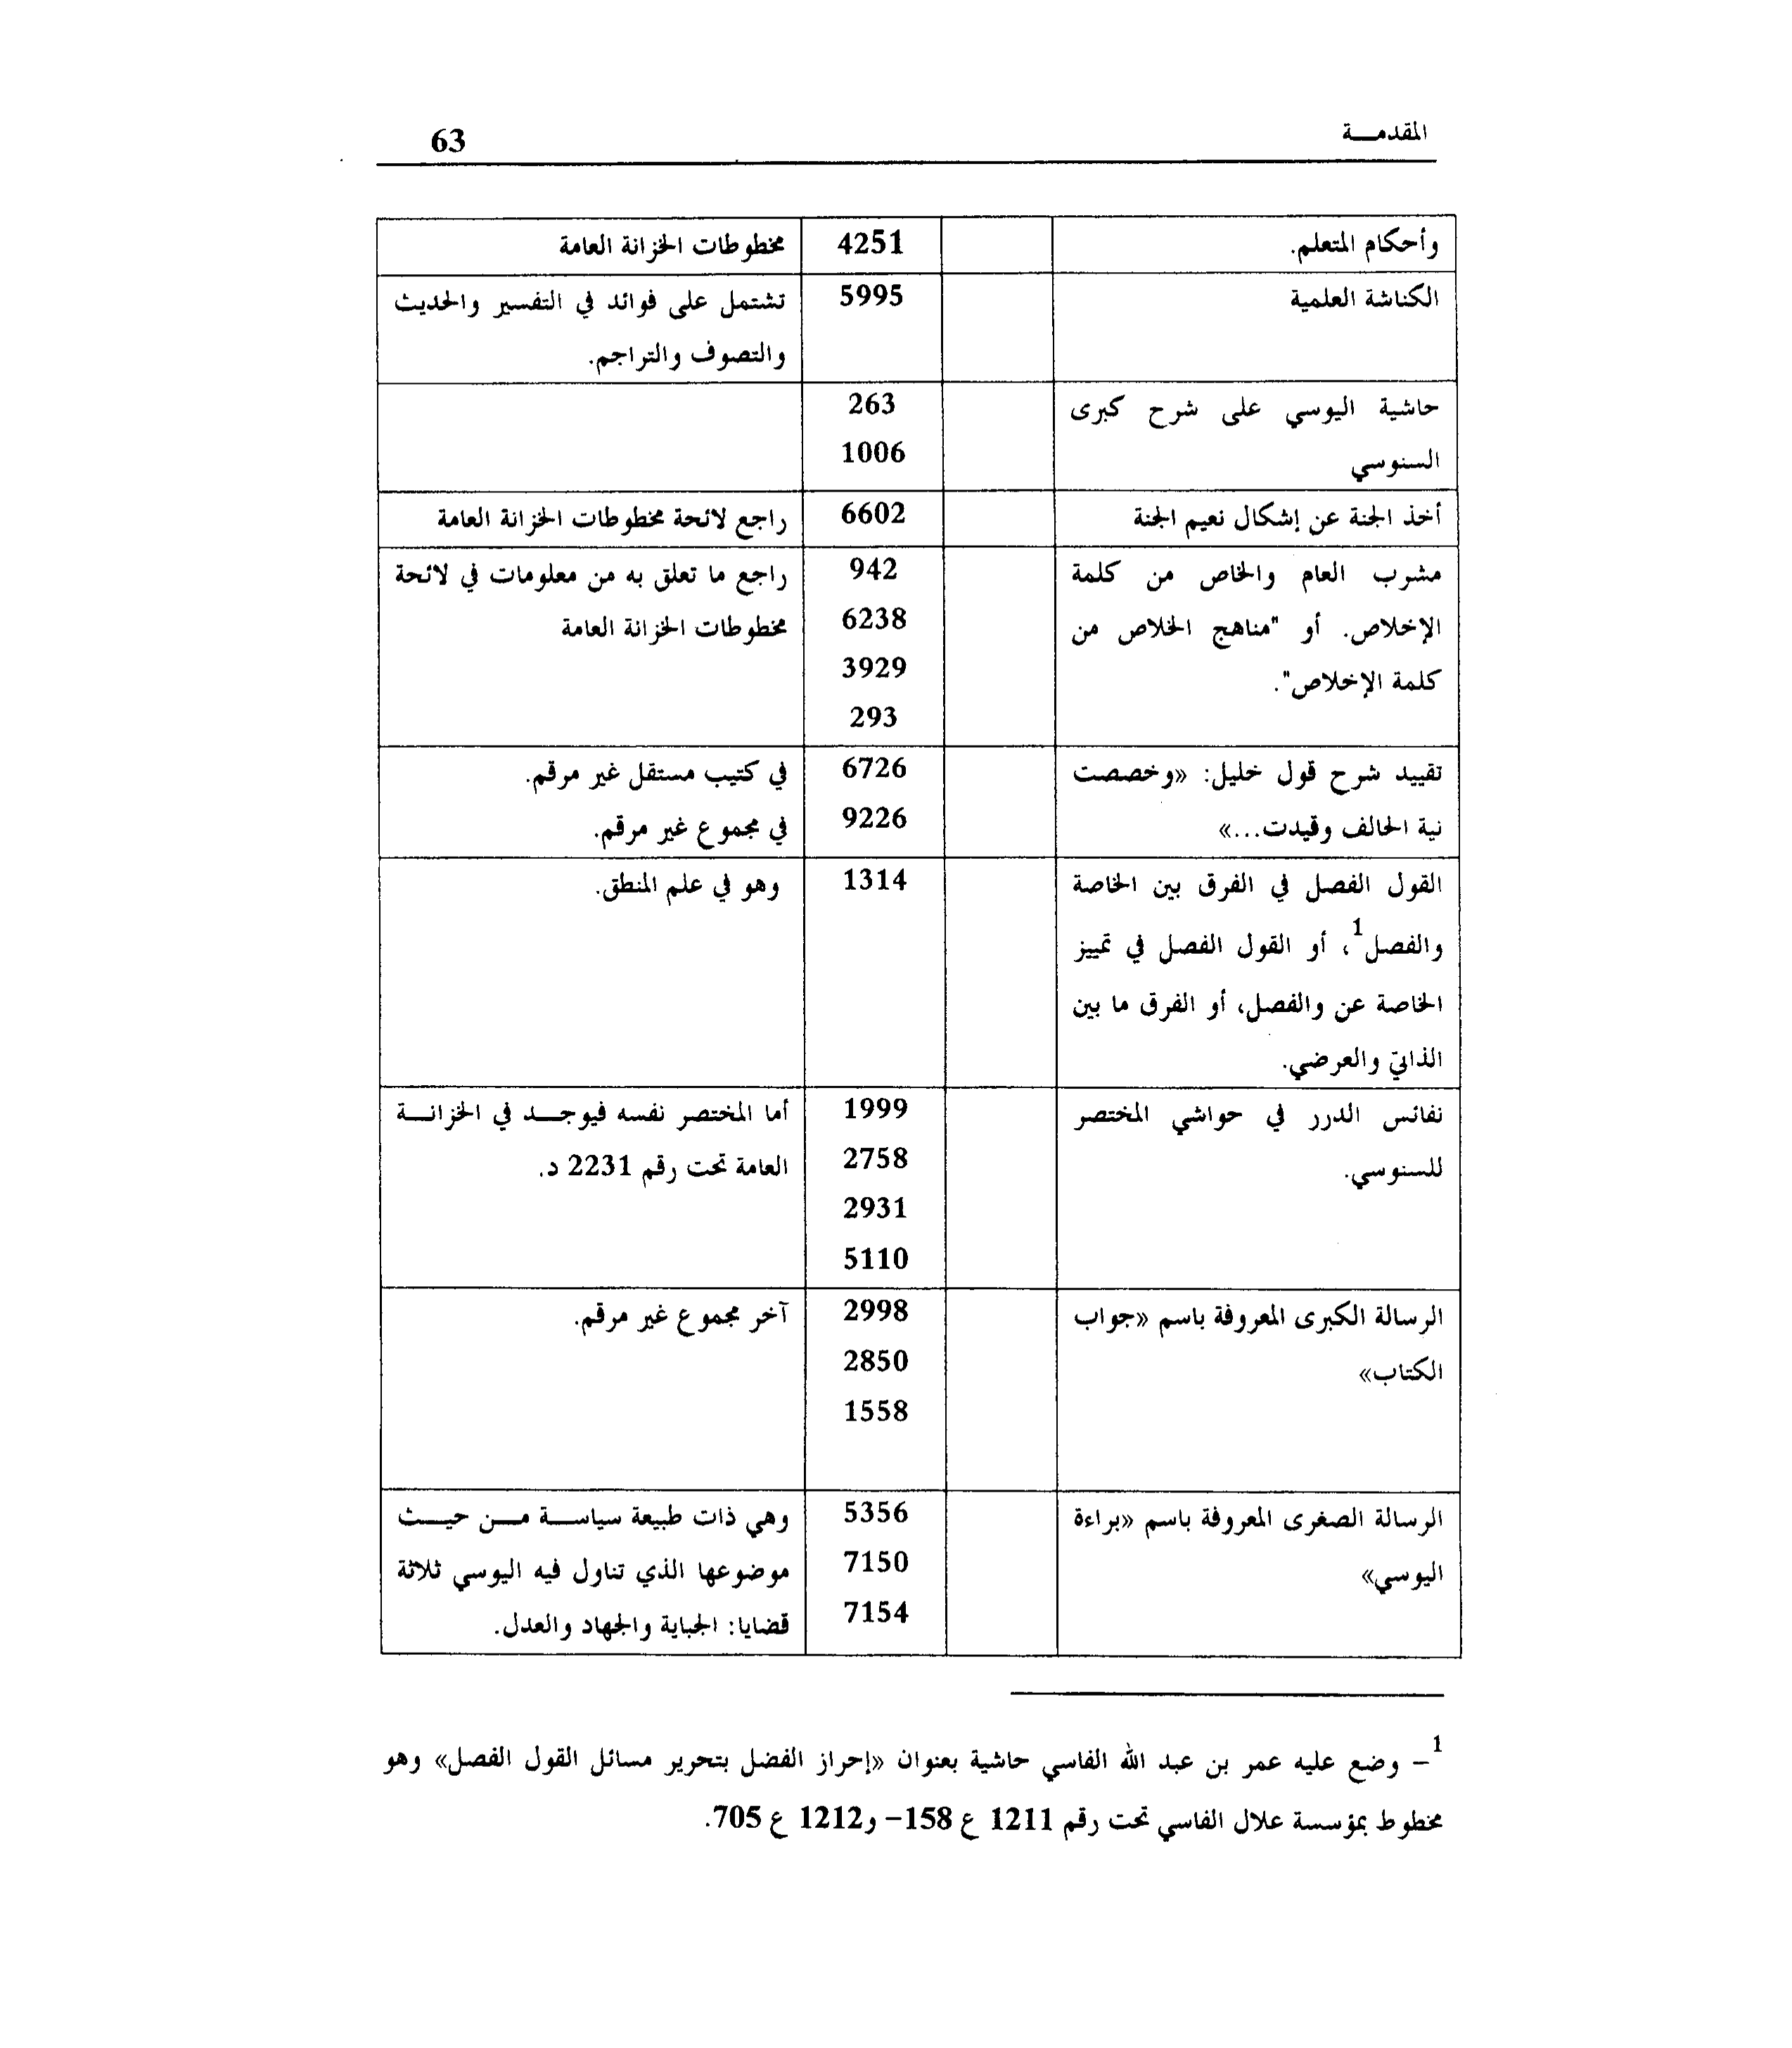 المقدمـــة
63
وأحكام المتعلم.
4251
مخطوطات الخزانة العامة
الكناشة العلمية
5995
تشتمل على فوائد في التفسير والحديث
والتصوف والتراجم.
حاشية اليوسي على شرح كبرى
السنوسي
263
1006
أخذ الجنة عن إشكال نعيم الجنة
6602
راجع لائحة مخطوطات الخزانة العامة
مشرب العام والخاص من كلمة
الإخلاص. أو "مناهج الخلاص من
كلمة الإخلاص".
942
6238
3929
293
راجع ما تعلق به من معلومات في لائحة
مخطوطات الخزانة العامة
تقييد شرح قول خليل: «وخصصت
نية الحالف وقيدت...»
6726
9226
في كتيب مستقل غير مرقم.
في مجموع غير مرقم.
القول الفصل في الفرق بين الخاصة
والفصل1، أو القول الفصل في تمييز
الخاصة عن والفصل، أو الفرق ما بين
الذاتي والعرضي.
1314
وهو في علم المنطق.
نفائس الدرر في حواشي المختصر
للسنوسي.
1999
2758
2931
5110
أما المختصر نفسه فيوجـــد في الخزانـــة
العامة تحت رقم 2231 د.
الرسالة الكبرى المعروفة باسم «جواب
الكتاب»
2998
2850
1558
آخر مجموع غير مرقم.
الرسالة الصغرى المعروفة باسم «براءة
اليوسي»
5356
7150
7154
وهي ذات طبيعة سياســـة مـــن حيـــث
موضوعها الذي تناول فيه اليوسي ثلاثة
قضايا: الجباية والجهاد والعدل.
1– وضع عليه عمر بن عبد الله الفاسي حاشية بعنوان «إحراز الفضل بتحرير مسائل القول الفصل» وهو
مخطوط بمؤسسة علال الفاسي تحت رقم 1211 ع 158– و1212 ع 705.